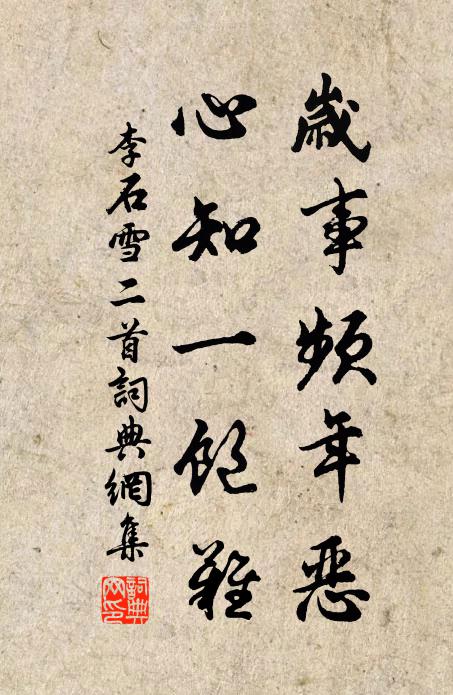 歲事頻年惡
心知一飽難
李石雪二首詞典網集